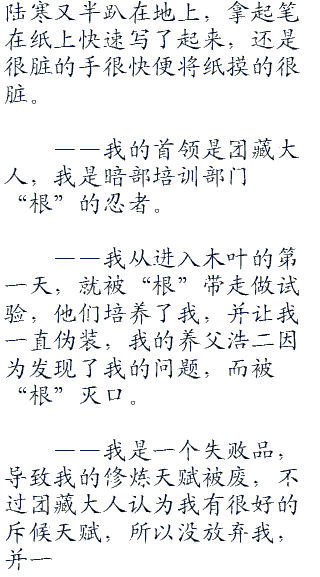 陆寒又半趴在地上，拿起笔
在纸上快速写了起来，还是
很脏的手很快便将纸摸的很
脏。
——我的首领是团藏大
人，我是暗部培训部门
“根”的忍者。
——我从进入木叶的第
一天，就被“根”带走做试
验，他们培养了我，并让我
一直伪装，我的养父浩二因
为发现了我的问题，而被
“根”灭口。
——我是一个失败品，
导致我的修炼天赋被废，不
过团藏大人认为我有很好的
斥候天赋，所以没放弃我，
并一